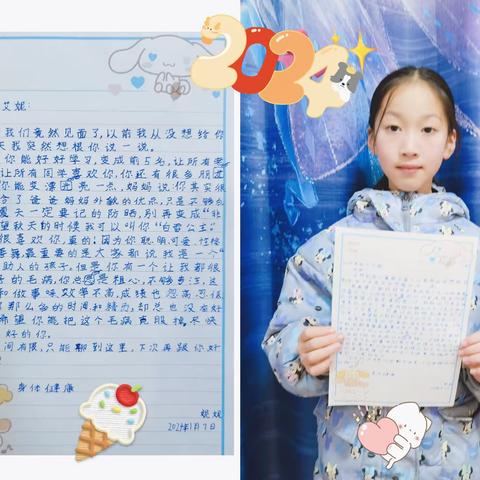 2024
艾妮:
我们竟然见面了,以前我从没想给你
天我突然想跟你说一说。
你能好好学习,变成前5名,让所有老
让所有同学喜欢你,你还有很多朋友
你能变漂亮一点,妈妈说你其实很
合了爸爸妈妈外貌的优点,只是不够白
夏天一定要记的防晒,别再变成“非
望秋天的时候我可以叫你“白雪公主”
很喜欢你,真的!因为你聪明可爱、性格
善舞,最重要的是大家都说我是一个“
助人的孩子。但是你有一个让我都很
的毛病,你总是粗心,不够专注,这
和做事味效率不高,成绩也忽高忽低
了那么多的时间和精力,却总也没有好
希望你能把这个毛病克服掉,早晚
好的你。
间有限,只能聊到这里,下次再跟你好
身体健康
妮妮
2024年1月7日